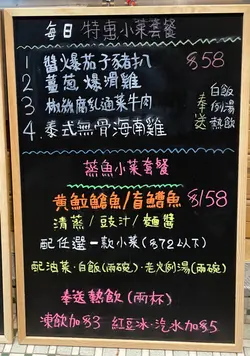 每日特惠小菜套餐
1 醬爆茄子豬扒 $58
2 薑蔥爆滑雞
3 椒絲腐乳通菜牛肉
4. 泰式無骨海南雞
奉送 白飯 例湯 熱飲
蒸魚小菜套餐
黃鮫鱠魚/盲鰽魚 $158
清蒸/豉汁/麵醬
配任選一款小菜($72以下)
配油菜·白飯(兩碗)·老火例湯(兩碗)
奉送熱飲(兩杯)
凍飲加$3 紅豆冰·汽水加$5